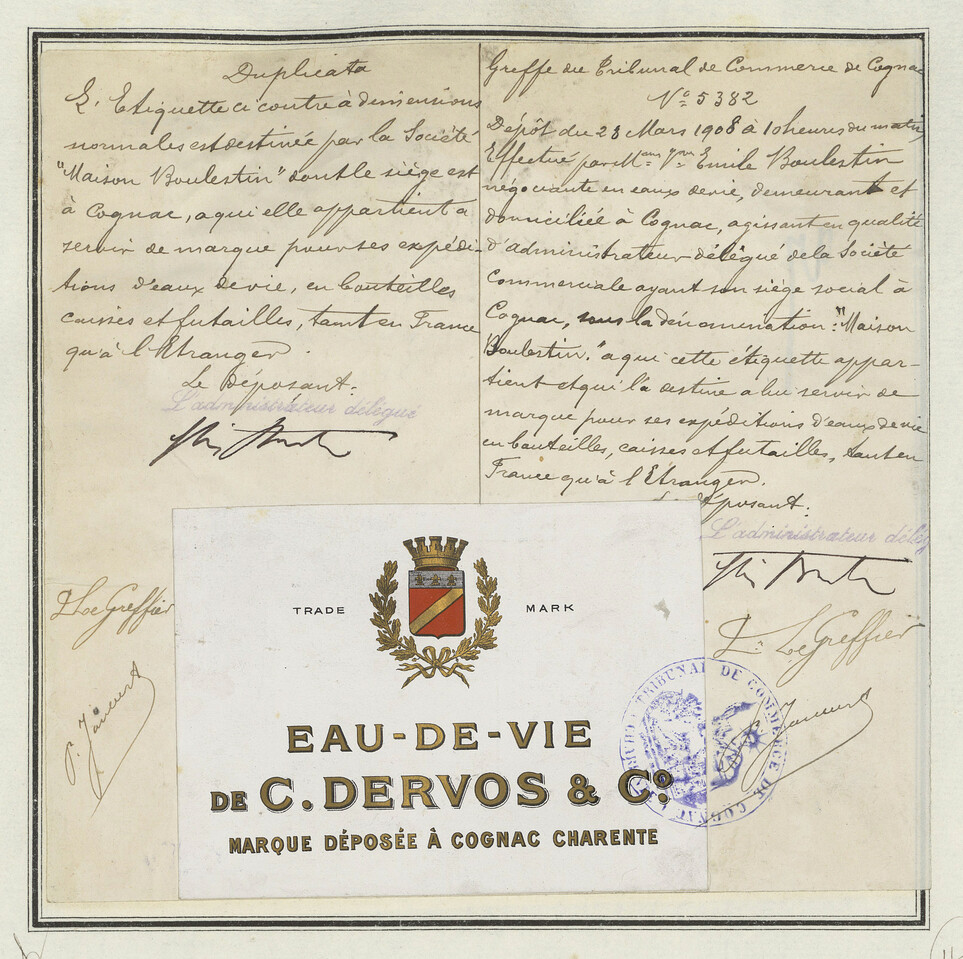 Duplicata
L'Etiquette ci contre à dimensions
normales est destinée par la Société
"Maison Boulestin" dont le siège est
à Cognac, a qui elle appartient a
servir de marque pour ses expédi-
tions d'eaux de vie, en bouteilles
caisses et futailles, tant en France
qu'à l'Etranger.
Le Déposant.
L'administrateur délégué
Le Greffier
Greffe du Tribunal de Commerce de Cognac
No 5382
Dépôt du 23 Mars 1908 à 10 heures du matin
Effectué par Mme Vve Emile Boulestin
négociante en eaux de vie, demeurant et
domiciliée à Cognac, agissant en qualité
d'administrateur délégué de la Société
Commerciale ayant son siège social à
Cognac, sous la dénomination: "Maison
Boulestin." a qui cette étiquette appar-
tient et qui l'a destine a lui servir de
marque pour ses expéditions d'eaux de vie
en bouteilles, caisses et futailles, tant en
France qu'à l'Etranger.
Déposant.
L'administrateur délég
Le Greffier
TRADE MARK
EAU-DE-VIE
DE C. DERVOS & Co.
MARQUE DÉPOSÉE À COGNAC CHARENTE
TRIBUNAL DE COMMERCE DE COGNAC